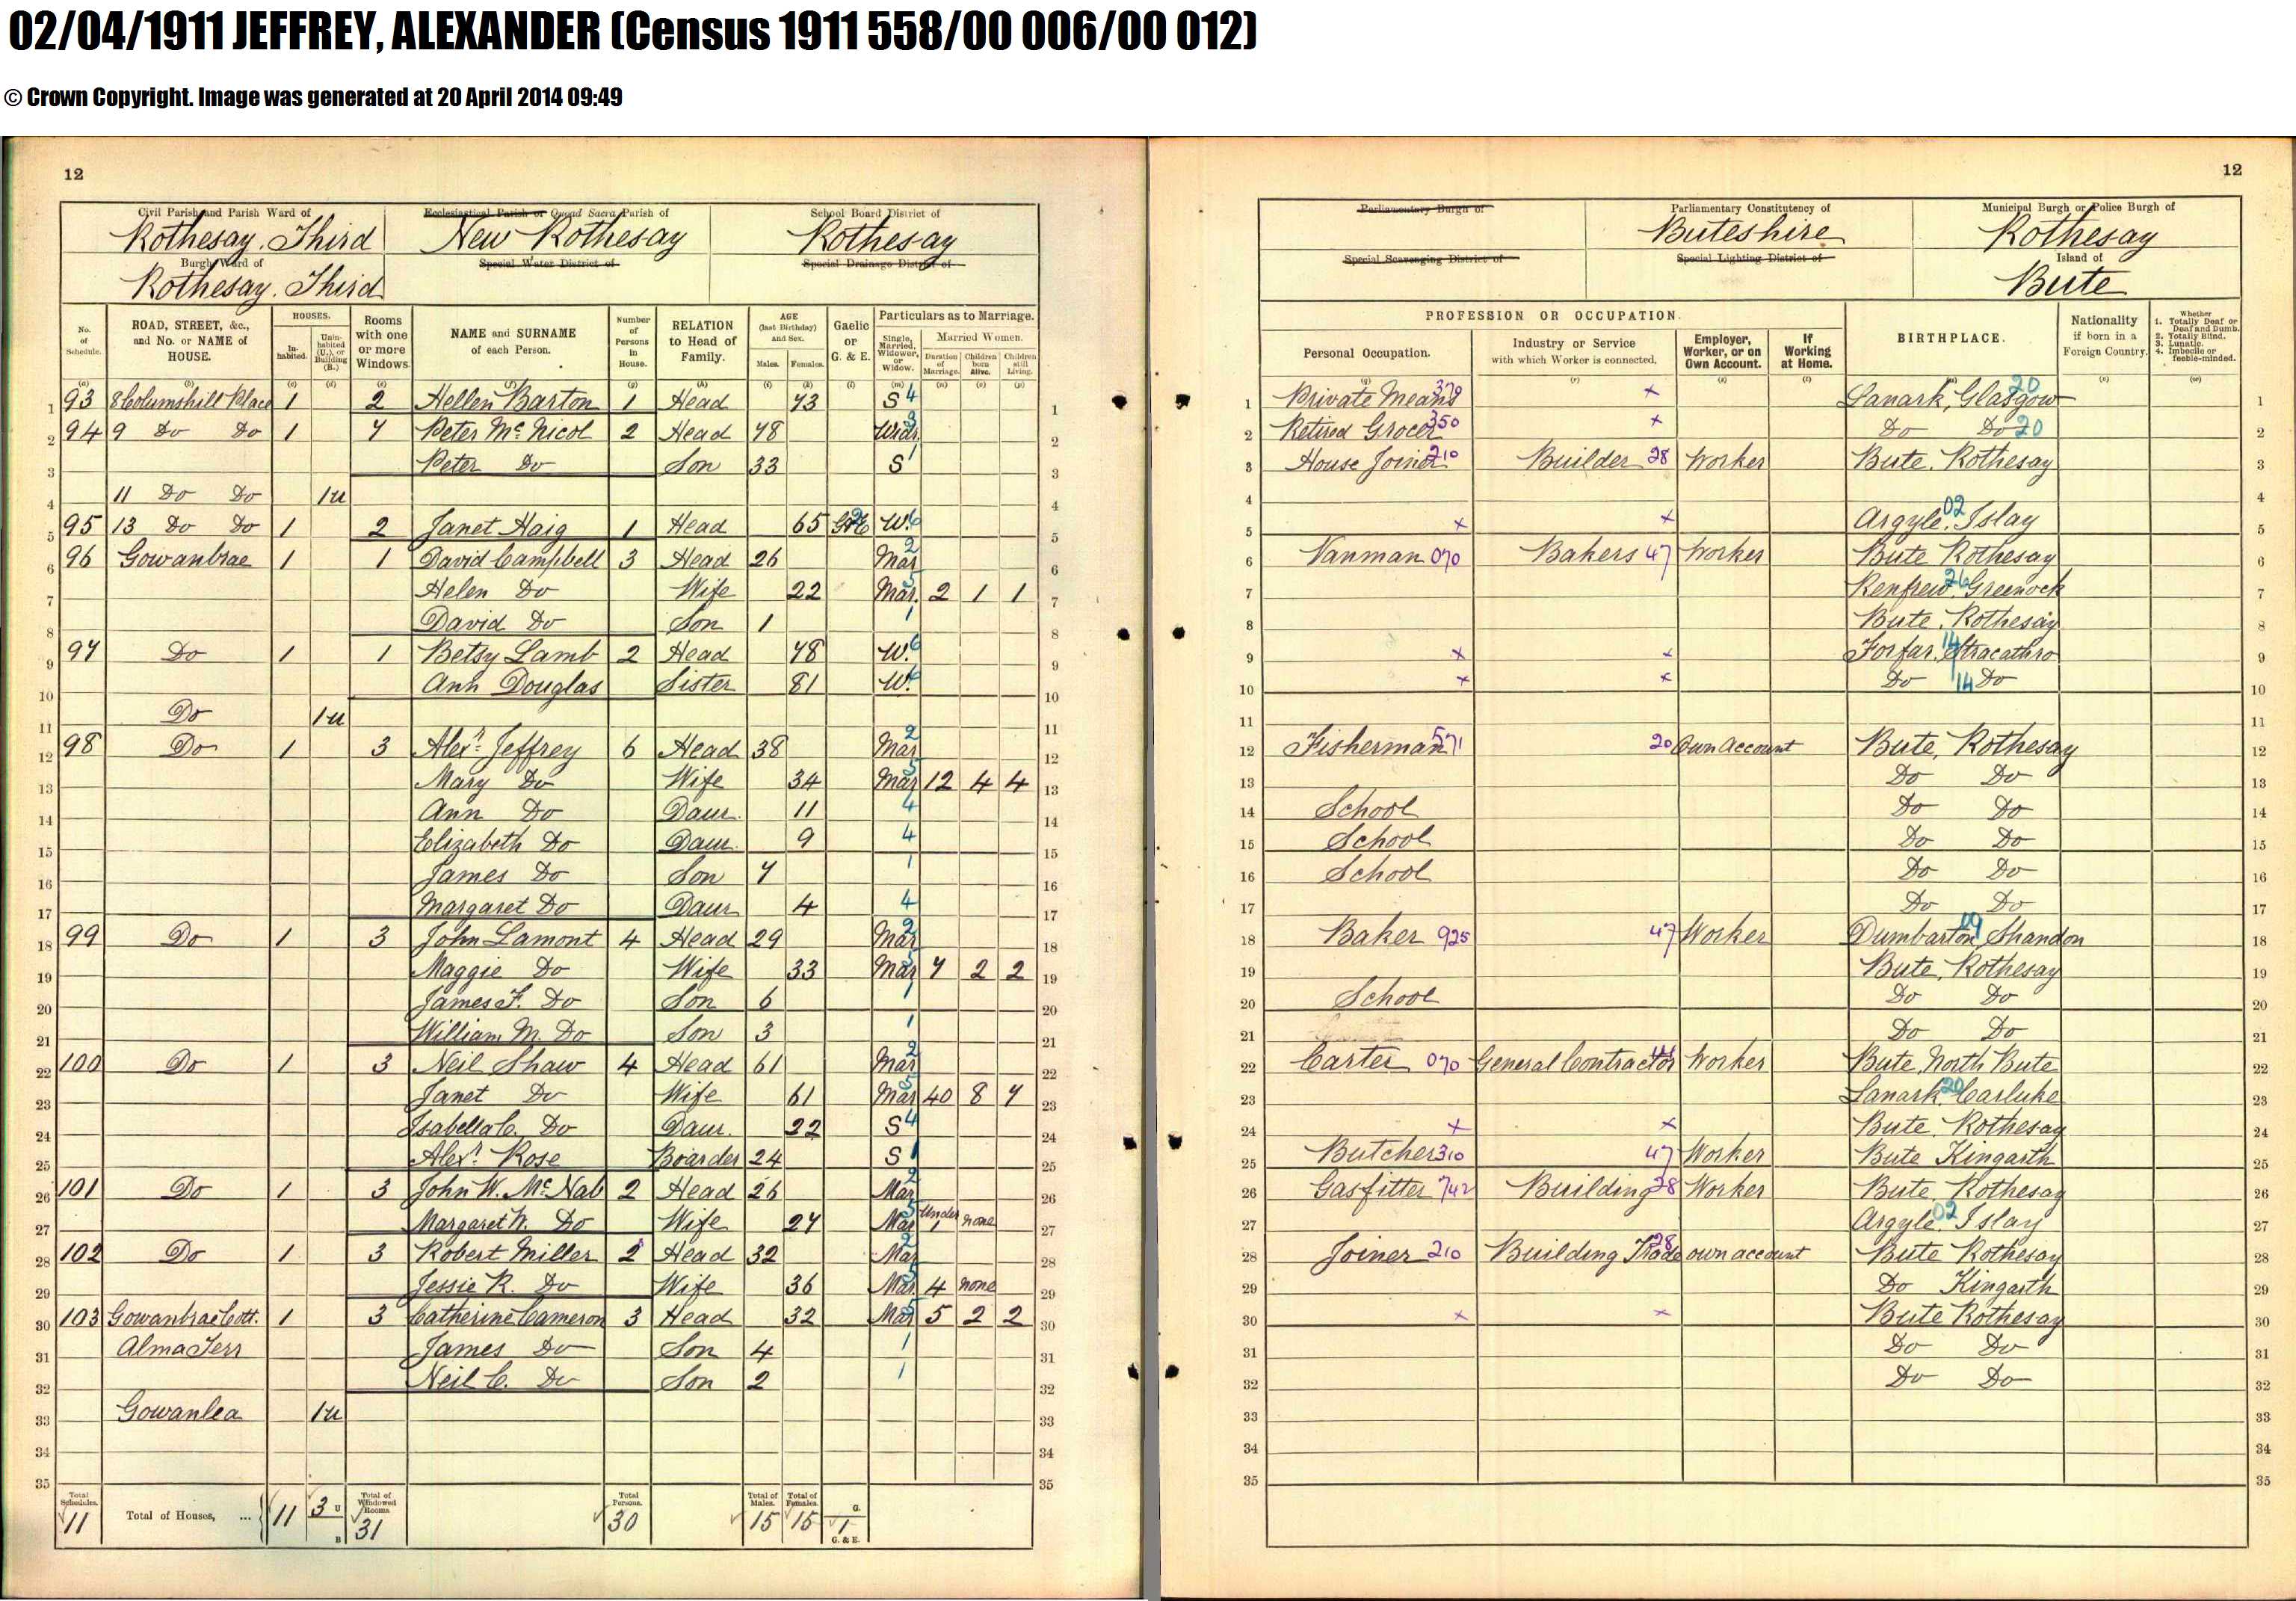 02/04/1911 JEFFREY, ALEXANDER (Census 1911 558/00 006/00 012)
© Crown Copyright. Image was generated at 20 April 2014 09:49
12
Civil Parish and Parish Ward of Ecclesiastical Parish or Quoad Sacra Parish of School Board District of
Rothesay. Third New Rothesay Rothesay
Burgh Ward of Special Water District of Special Drainage District of
Rothesay. Third
No. of Schedule. ROAD, STREET, &c., and No. or NAME of HOUSE. HOUSES. Inhabited. Uninhabited (U.), or Building (B.) Rooms with one or more Windows NAME and SURNAME of each Person. Number of Persons in House. RELATION to Head of Family. AGE (last Birthday) and Sex. Males. Females. Gaelic or G. & E. Particulars as to Marriage. Single, Married, Widower, or Widow. Married Women. Duration of Marriage. Children born Alive. Children still Living.
(a) (b) (c) (d) (e) (f) (g) (h) (i) (k) (l) (m) (n) (o) (p)
1 93 8 Columshill Place 1 2 Hellen Barton 1 Head 73 S 4 1
2 94 9 Do Do 1 7 Peter McNicol 2 Head 78 Widr. 3 2
3 Peter Do Son 33 S 1 3
4 11 Do Do 1u 4
5 95 13 Do Do 1 2 Janet Haig 1 Head 65 G&E W. 6 5
6 96 Gowanbrae 1 1 David Campbell 3 Head 26 Mar 2 6
7 Helen Do Wife 22 Mar. 5 2 1 1 7
8 David Do Son 1 1 8
9 97 Do 1 1 Betsy Lamb 2 Head 78 W. 6 9
10 Ann Douglas Sister 81 W. 6 10
11 Do 1u 11
12 98 Do 1 3 Alexr. Jeffrey 6 Head 38 Mar 2 12
13 Mary Do Wife 34 Mar 5 12 4 4 13
14 Ann Do Daur. 11 4 14
15 Elizabeth Do Daur. 9 4 15
16 James Do Son 7 1 16
17 Margaret Do Daur 4 4 17
18 99 Do 1 3 John Lamont 4 Head 29 Mar 2 18
19 Maggie Do Wife 33 Mar 5 7 2 2 19
20 James F. Do Son 6 1 20
21 William M. Do Son 3 1 21
22 100 Do 1 3 Neil Shaw 4 Head 61 Mar 2 22
23 Janet Do Wife 61 Mar 5 40 8 7 23
24 Isabella C. Do Daur. 22 S 4 24
25 Alexr. Rose Boarder 24 S 1 25
26 101 Do 1 3 John W. McNab 2 Head 26 Mar 2 26
27 Margaret N. Do Wife 27 Mar 5 Under 1 none 27
28 102 Do 1 3 Robert Miller 2 Head 32 Mar 2 28
29 Jessie R. Do Wife 36 Mar. 5 4 none 29
30 103 Gowanbrae Cott. 1 3 Catherine Cameron 3 Head 32 Mar 5 5 2 2 30
31 Alma Terr James Do Son 4 1 31
32 Neil C. Do Son 2 1 32
33 Gowanlea 1u 33
34 34
35 35
Total Schedules. 11 Total of Houses, ... 11 3 U B Total of Windowed Rooms. 31 Total Persons. 30 Total of Males. 15 Total of Females. 15 G. 1 G. & E.
12
Parliamentary Burgh of Parliamentary Constitutency of Municipal Burgh or Police Burgh of
Buteshire Rothesay
Special Scavenging District of Special Lighting District of Island of
Bute
PROFESSION OR OCCUPATION. BIRTHPLACE. Nationality if born in a Foreign Country. Whether 1. Totally Deaf or Deaf and Dumb. 2. Totally Blind. 3. Lunatic. 4. Imbecile or feeble-minded.
Personal Occupation. Industry or Service with which Worker is connected. Employer, Worker, or on Own Account. If Working at Home.
(q) (r) (s) (t) (u) (v) (w)
1 Private Means 370 x Lanark, Glasgow 20 1
2 Retired Grocer 350 x Do Do 20 2
3 House Joiner 210 Builder 28 Worker Bute. Rothesay 3
4 4
5 x x Argyle, Islay 02 5
6 Vanman 070 Bakers 47 Worker Bute Rothesay 6
7 Renfrew, Greenock 26 7
8 Bute, Rothesay 8
9 x x Forfar, Stracathro 14 9
10 x x Do Do 14 10
11 11
12 Fisherman 571 20 Own Account Bute, Rothesay 12
13 Do Do 13
14 School Do Do 14
15 School Do Do 15
16 School Do Do 16
17 Do Do 17
18 Baker 925 47 Worker Dumbarton, Shandon 19 18
19 Bute, Rothesay 19
20 School Do Do 20
21 Do Do 21
22 Carter 070 General Contractor Worker Bute, North Bute 22
23 Lanark, Carluke 20 23
24 x x Bute, Rothesay 24
25 Butcher 310 47 Worker Bute Kingarth 25
26 Gasfitter 742 Building 28 Worker Bute, Rothesay 26
27 Argyle, Islay 02 27
28 Joiner 210 Building Trade 28 own account Bute Rothesay 28
29 Do Kingarth 29
30 x x Bute Rothesay 30
31 Do Do 31
32 Do Do 32
33 33
34 34
35 35